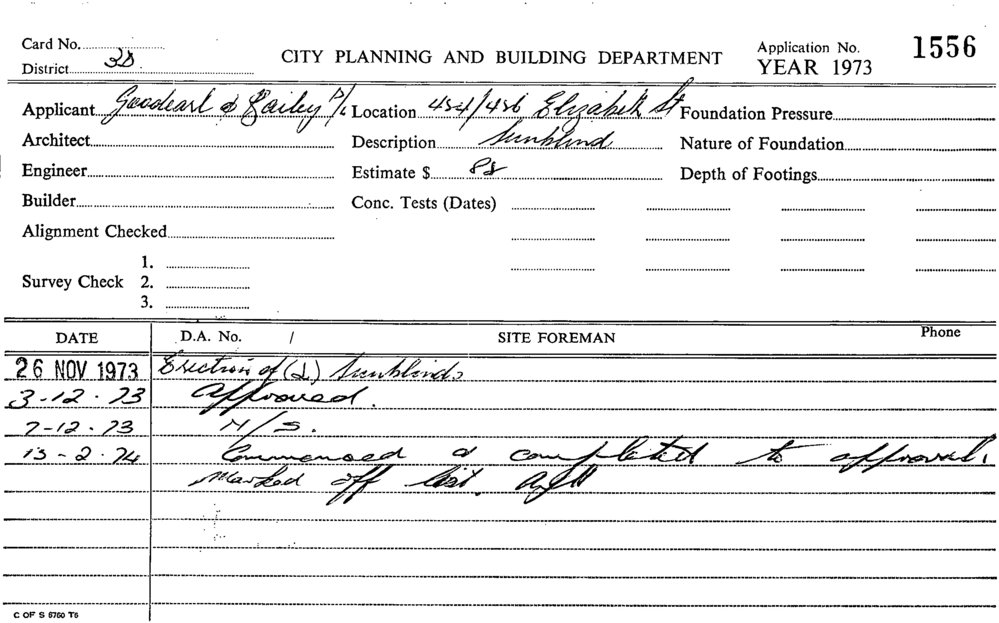 Card No.
District
CITY PLANNING AND BUILDING DEPARTMENT
Application No. 1556
YEAR 1973
Applicant Goodearl & Bailey P/L Location 454/456 Elizabeth St Foundation Pressure
Architect Description Sunblind Nature of Foundation
Engineer Estimate $ Depth of Footings
Builder Conc. Tests (Dates)
Alignment Checked
1.
Survey Check 2.
3.
DATE D.A. No. / SITE FOREMAN Phone
26 NOV 1973 Erection of Sunblinds
3-12-73 Approved.
7-12-73 N/S.
13-2-74 Commenced & completed to approval.
Marked off list.
C OF S 6760 T6